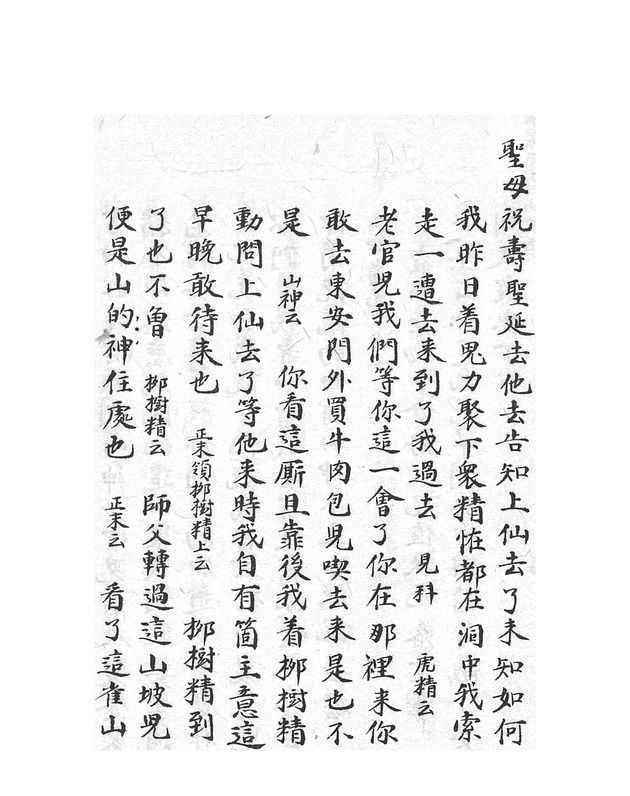 聖母祝壽聖延去他去告知上仙去了未知如何
我昨日着鬼力聚下衆精恠都在洞中我索
走一遭去来到了我過去 見科 虎精云
老官児我們等你這一會了你在那裡来你
敢去東安門外買牛肉包児喫去来是也不
是 山神云 你看這厮且靠後我着柳樹精
動問上仙去了等他来時我自有箇主意這
早晚敢待来也 正末領柳樹精上云 柳樹精到
了也不曾 柳樹精云 師父轉過這山坡児
便是山的神住處也 正末云 看了這雀山